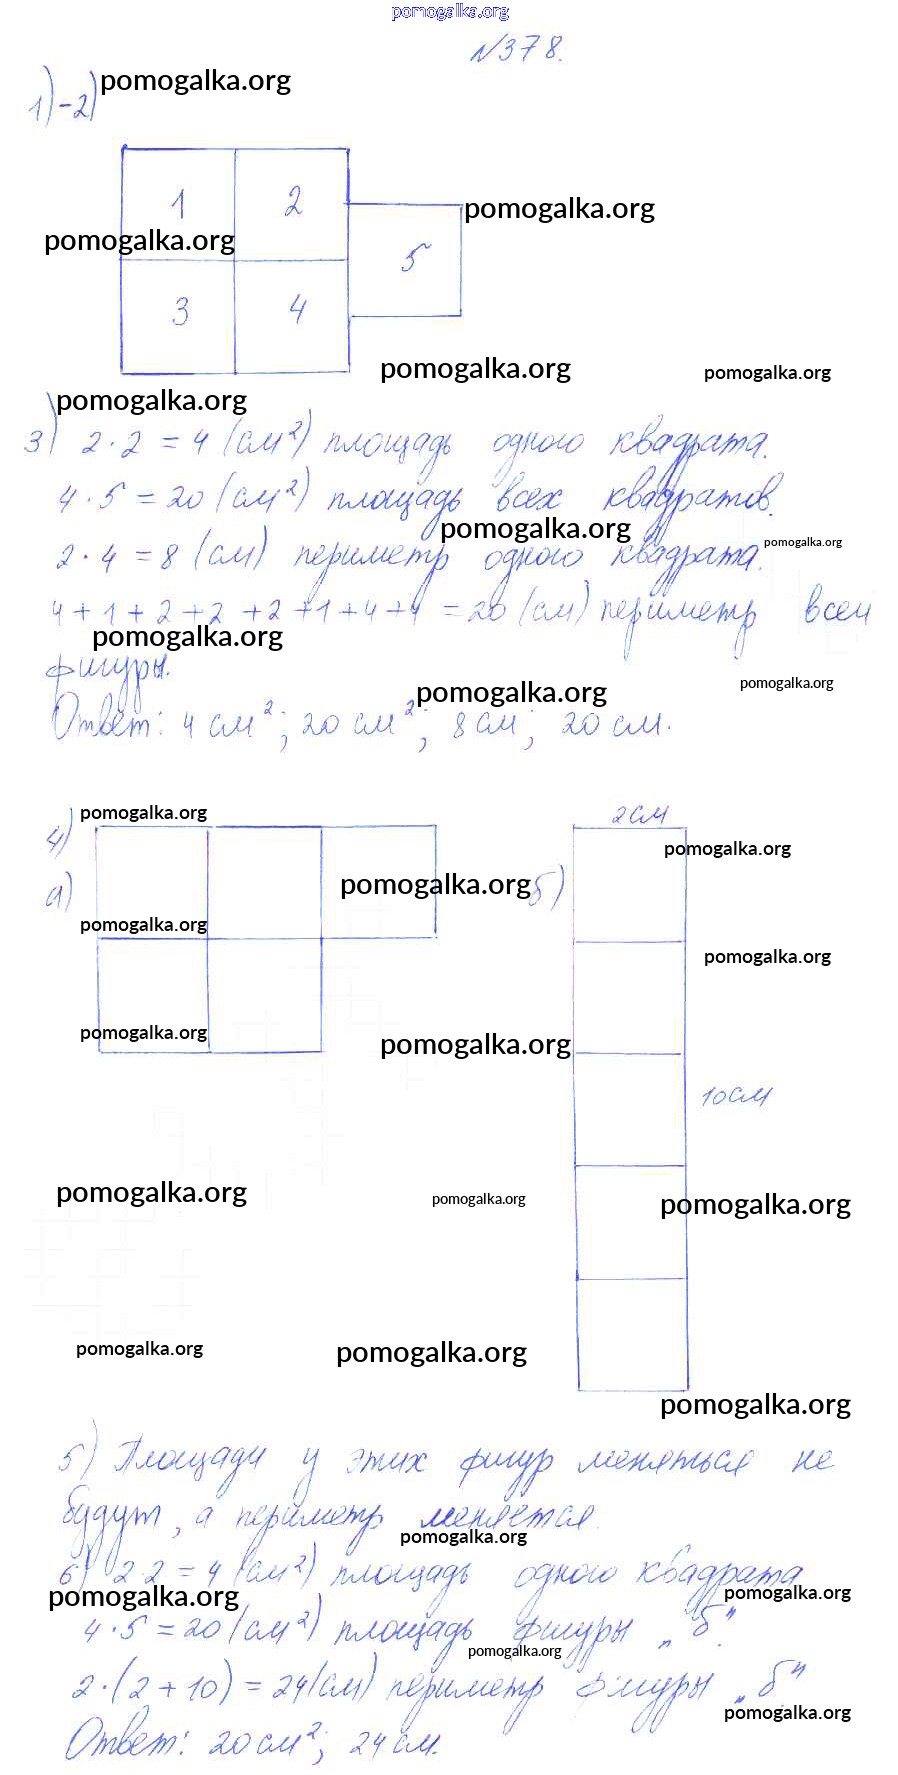 pomogalka.org
№378.
1)-2) pomogalka.org
1 2
pomogalka.org
pomogalka.org
5
3 4
pomogalka.org
pomogalka.org
pomogalka.org
3) 2·2 = 4 (см²) площадь одного квадрата.
4·5 = 20 (см²) площадь всех квадратов.
pomogalka.org
pomogalka.org
2·4 = 8 (см) периметр одного квадрата.
4+1+2+2+2+1+4+4 = 20 (см) периметр всей
pomogalka.org
фигуры.
pomogalka.org
pomogalka.org
Ответ: 4 см²; 20 см²; 8 см; 20 см.
4) pomogalka.org
2см
pomogalka.org
а) pomogalka.org б)
pomogalka.org
pomogalka.org
pomogalka.org
pomogalka.org
10см
pomogalka.org
pomogalka.org
pomogalka.org
pomogalka.org
pomogalka.org
pomogalka.org
5) Площади у этих фигур меняться не
будут, а периметр меняется.
pomogalka.org
6) 2·2 = 4 (см²) площадь одного квадрата
pomogalka.org
pomogalka.org
4·5 = 20 (см²) площадь фигуры „б".
pomogalka.org
2·(2+10) = 24(см) периметр фигуры „б"
pomogalka.org
Ответ: 20 см²; 24 см.